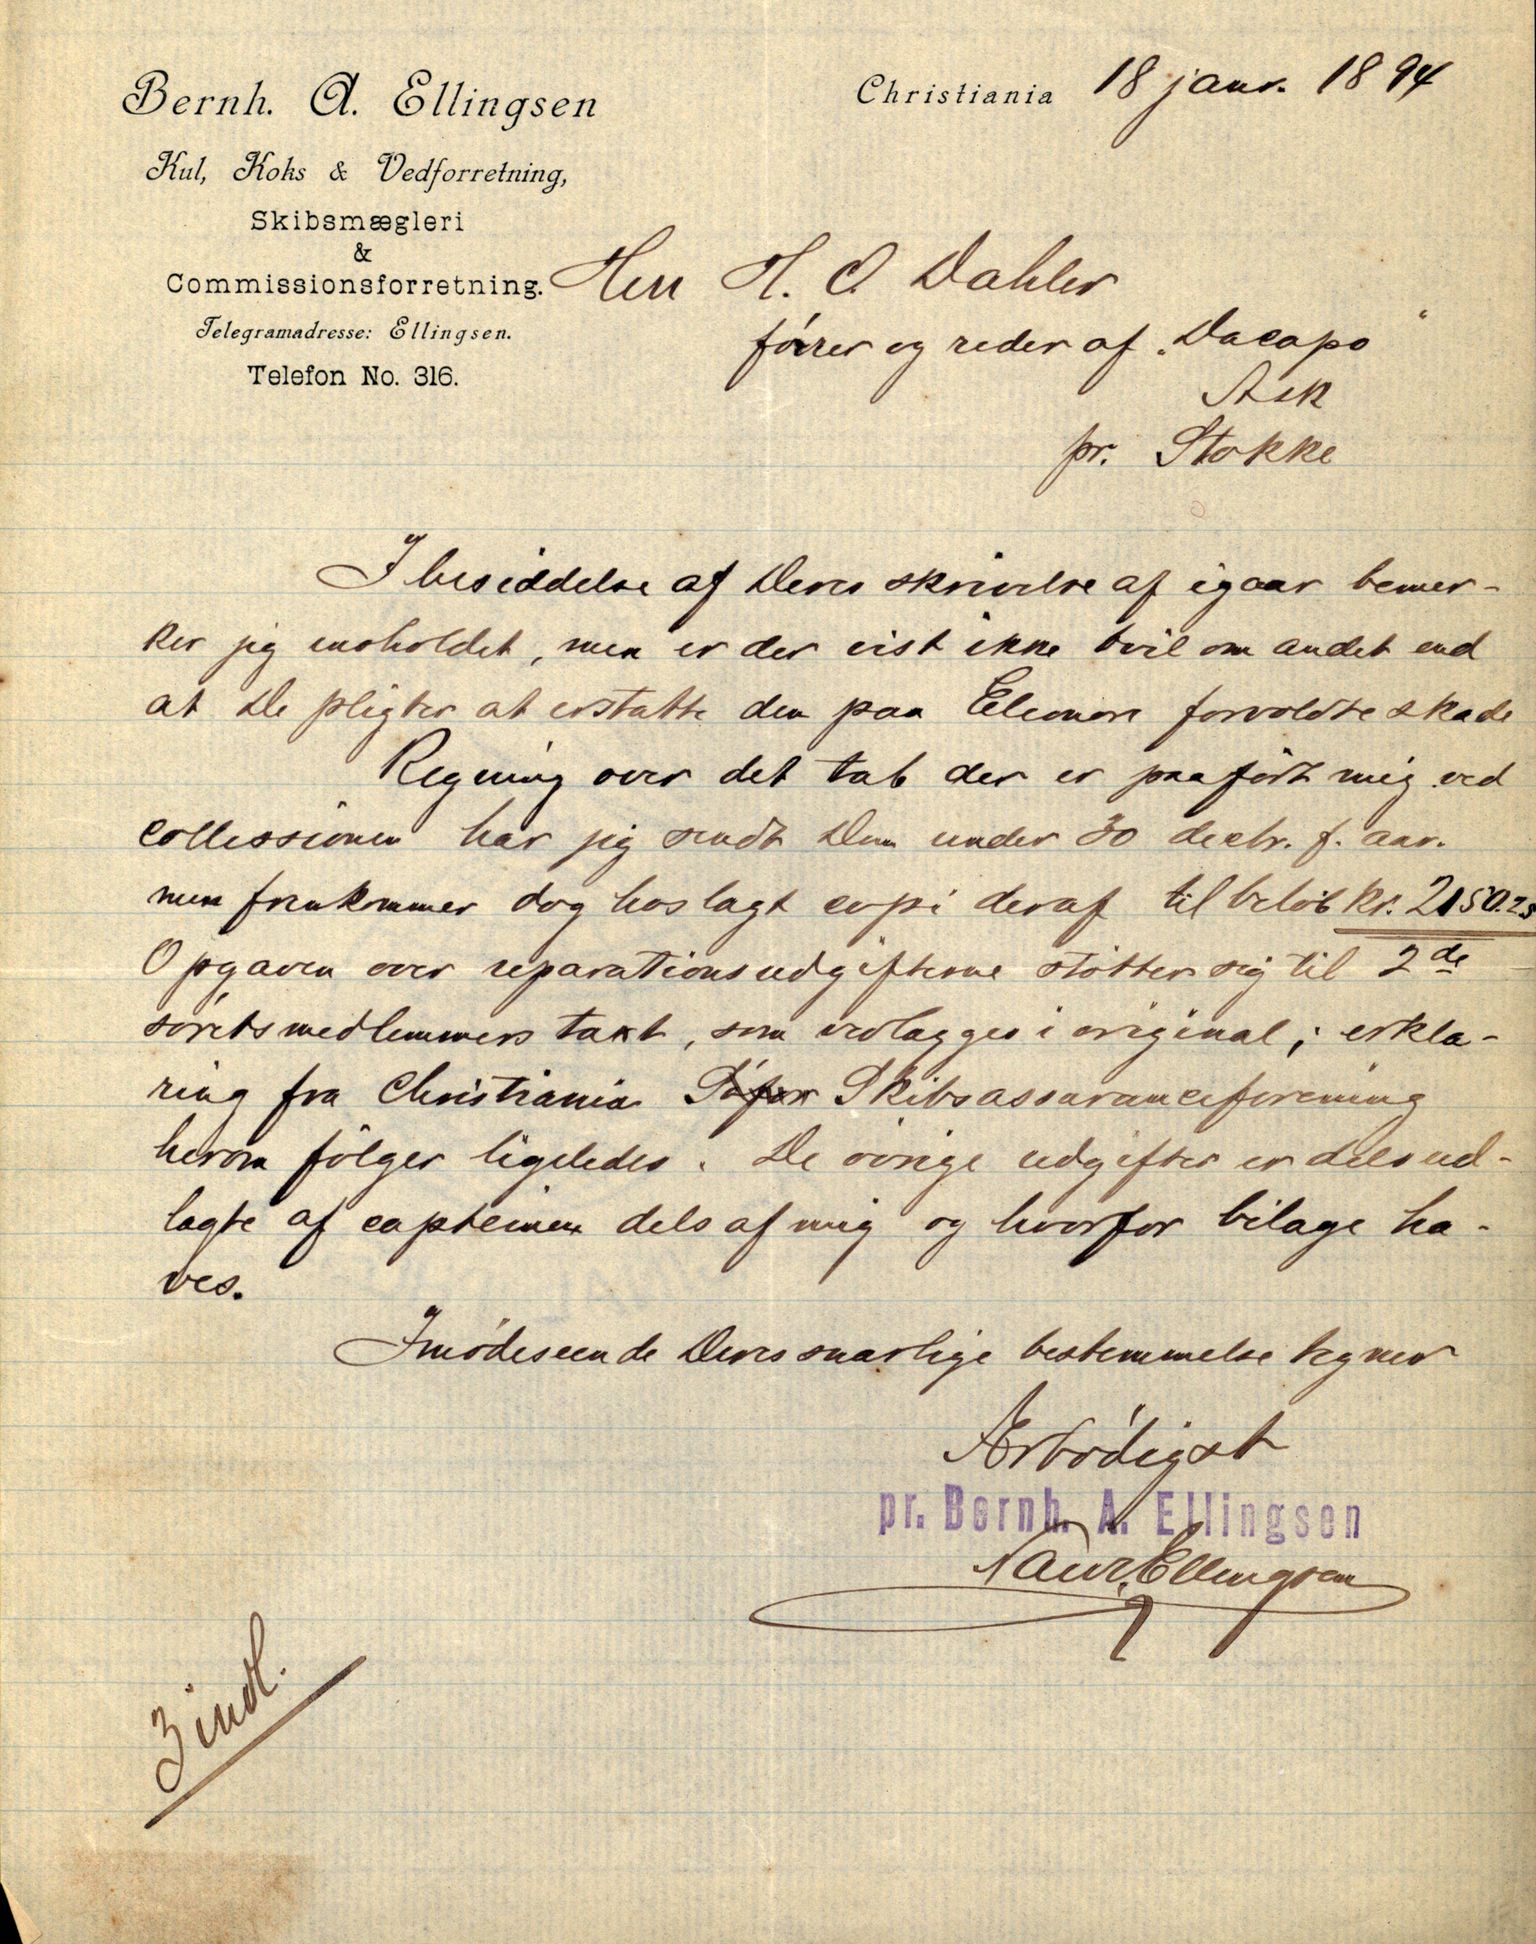 Bernh. A. Ellingsen
Kul, Koks & Vedforretning,
Skibsmægleri
&
Commissionsforretning.
Telegramadresse: Ellingsen.
Telefon No. 316.
Christiania 18 janr. 1894
Herr H. O. Dahler
fører og reder af "Dacapo"
Ask
pr. Stokke
I besiddelse af Deres skrivelse af igaar bemer-
ker jig indholdet, men er der vist ikke tvil om andet end
at De pligter at erstatte den paa Eleonore forvoldte skade
Regning over det tab der er paaført mig ved
collissionen har jig sendt Dem under 30 decbr. f. aar.
men fremkommer dog hoslagt copi deraf til beløb kr. 2150.25
Opgaven over reparationsudgifterne støtter sig til 2de
søretsmedlemmers taxt, som vedlægges i original; erklæ-
ring fra Christiania Skibsassuranceforening
herom følger ligeledes. De øvrige udgifter er dels ud-
lagte af capteinen dels af mig og hvorfor bilage ha-
ves.
Imødeseende Deres snarlige bestemmelse tegner
Ærbødigst
pr. Bernh. A. Ellingsen
Laur. Ellingsen
3 indl.